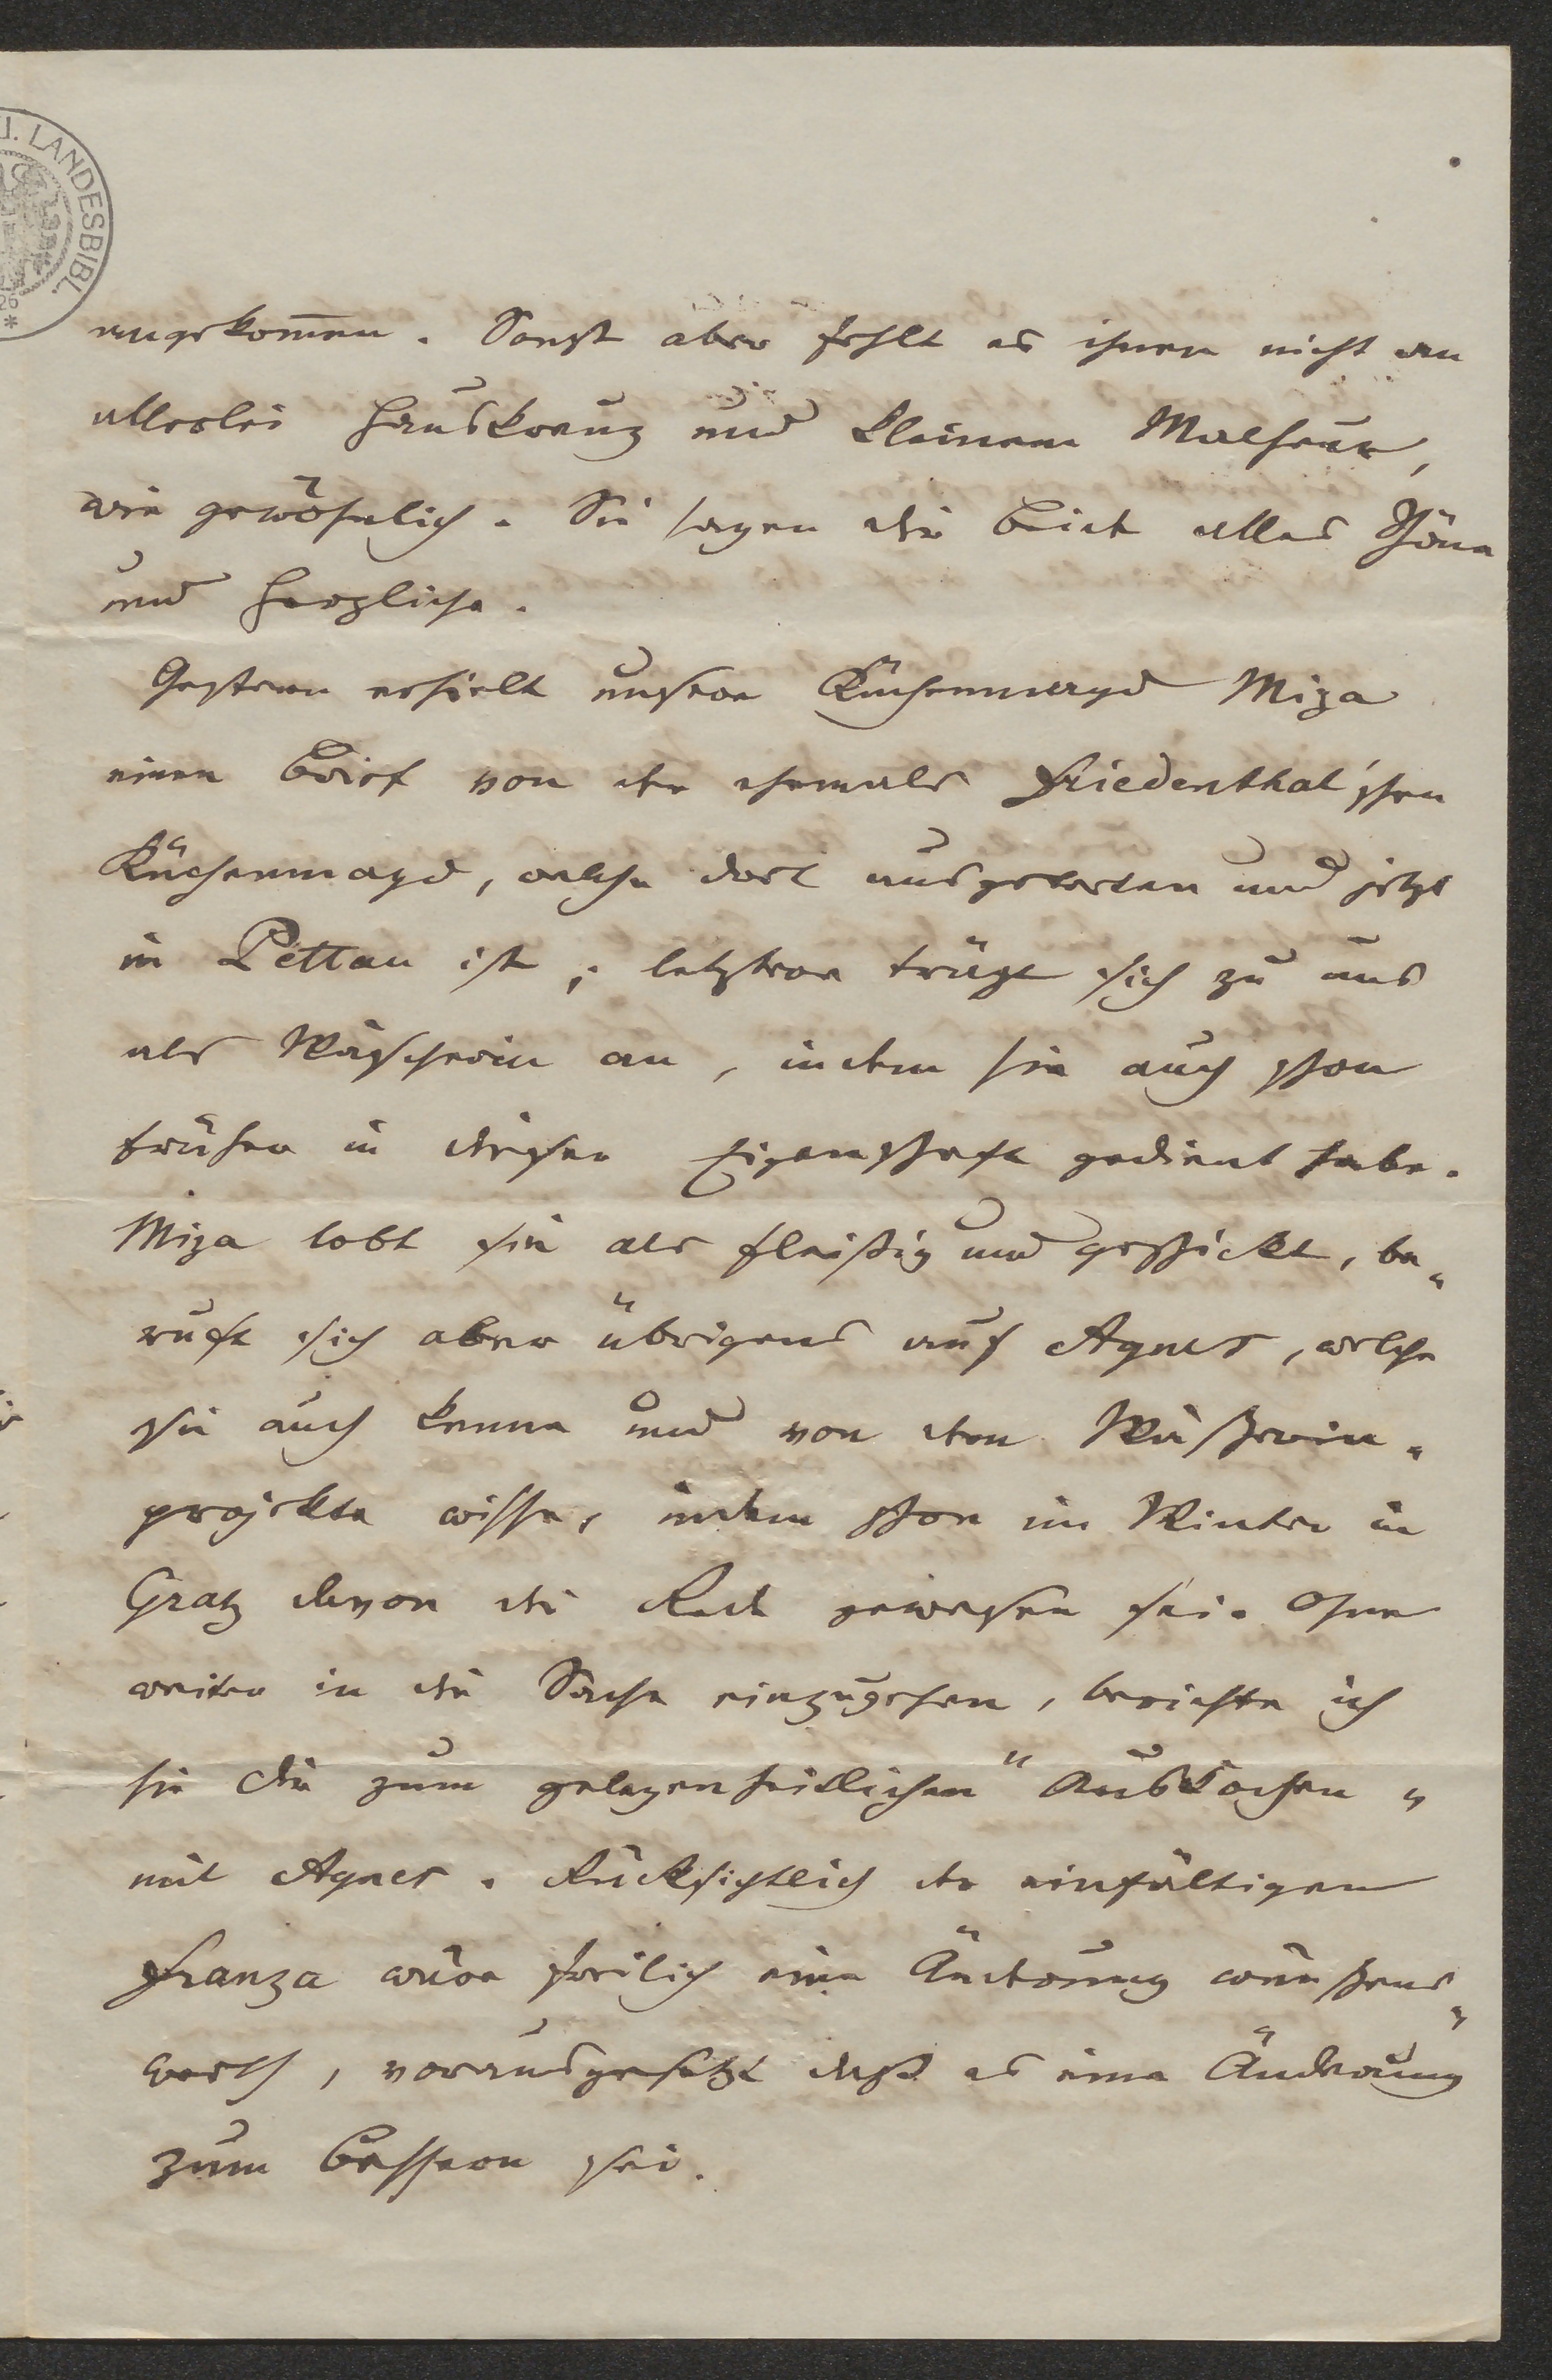 J. LANDESBIBL.
26
*
angekom̅en. Sonst aber fehlt es ihnen nicht an
allerlei Hauskreuz und kleinem Malheur,
wie gewöhnlich. Sie sagen dir Beide alles Schöne
und Herzliche.
Gestern erhielt unsere Küchenmagd Miza
einen Brief von der ehemals Friedenthal'schen
Küchenmagd, welche dort ausgetreten und jetzt
in Pettau ist; letztere trägt sich zu uns
als Wäscherin an, indem sie auch schon
früher in dieser Eigenschaft gedient habe.
Miza lobt sie als fleißig und geschickt, be„
ruft sich aber übrigens auf Agnes, welche
sie auch kenne und von dem Wäscherin„
projekte wisse, indem schon im Winter in
Gratz davon die Rede gewesen sei. Ohne
weiter in die Sache einzugehen, berichte ich
sie dir zum gelegenheitlichen "Auskochen"
mit Agnes. Rücksichtlich der einfältigen
Franza wäre freilich eine Änderung wünschens„
werth, vorausgesetzt daß es eine Änderung
zum Bessern sei.